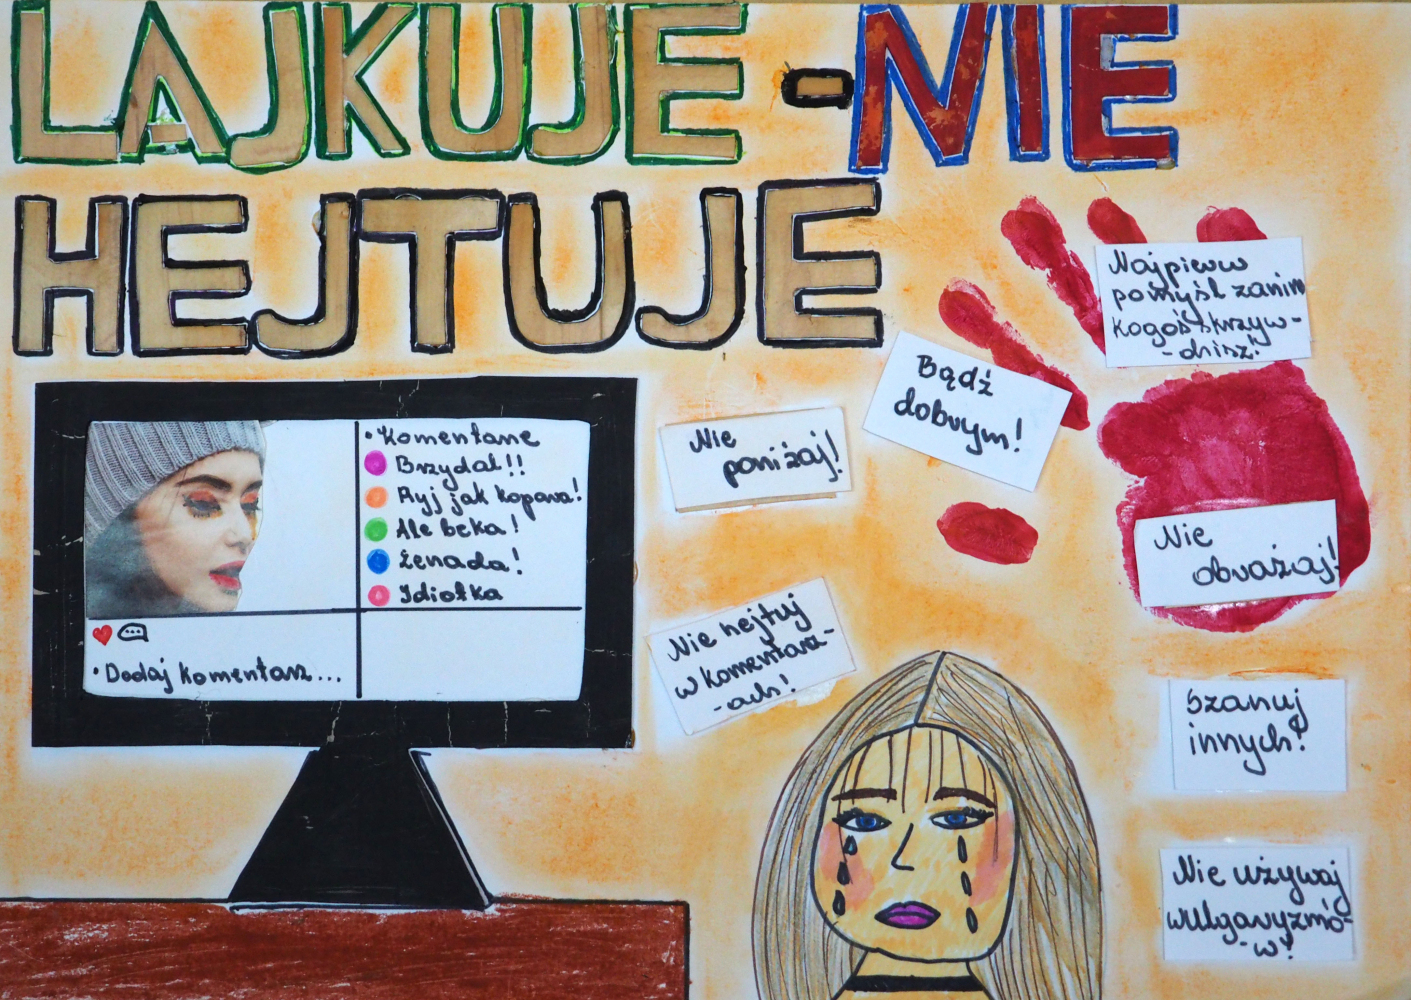 LAJKUJE-NIE
HEJTUJE
• Komentarze
Brzydal!!
Ryj jak kopara!
Ale beka!
Żenada!
Idiotka
• Dodaj komentarz...
Nie
poniżaj!
Bądź
dobrym!
Najpierw
pomyśl zanim
kogoś skrzyw-
-dzisz!
Nie
obrażaj!
Nie hejtuj
w komentarz-
-ach!
Szanuj
innych!
Nie używaj
wulgaryzmó-
-w!